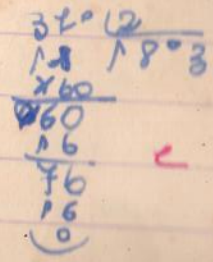 37° 2
18 18° 3
×60
60
16
76
16
0